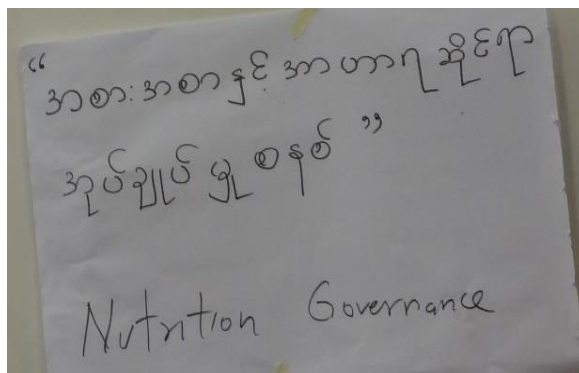 “အစားအစာနှင့် အာဟာရ ဆိုင်ရာ
အုပ်ချုပ်မှု စနစ်”
Nutrition Governance